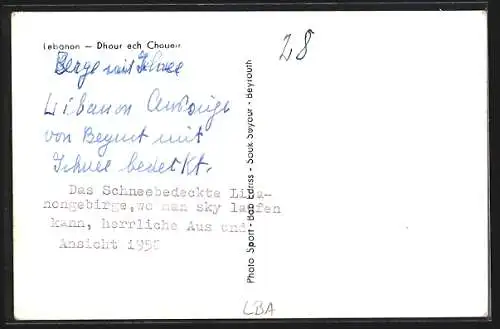 Lebanon — Dhour ech Choueir
28
Berge mit Schnee
Libanon
von Beyrut mit
Schnee bedeckt.
Das Schneebedeckte Liba-
nongebirge, wo man sky laufen
kann, herrliche Aus und
Ansicht 1956
Photo Sport - Bab Edriss - Souk Seyour - Beyrouth
LBA